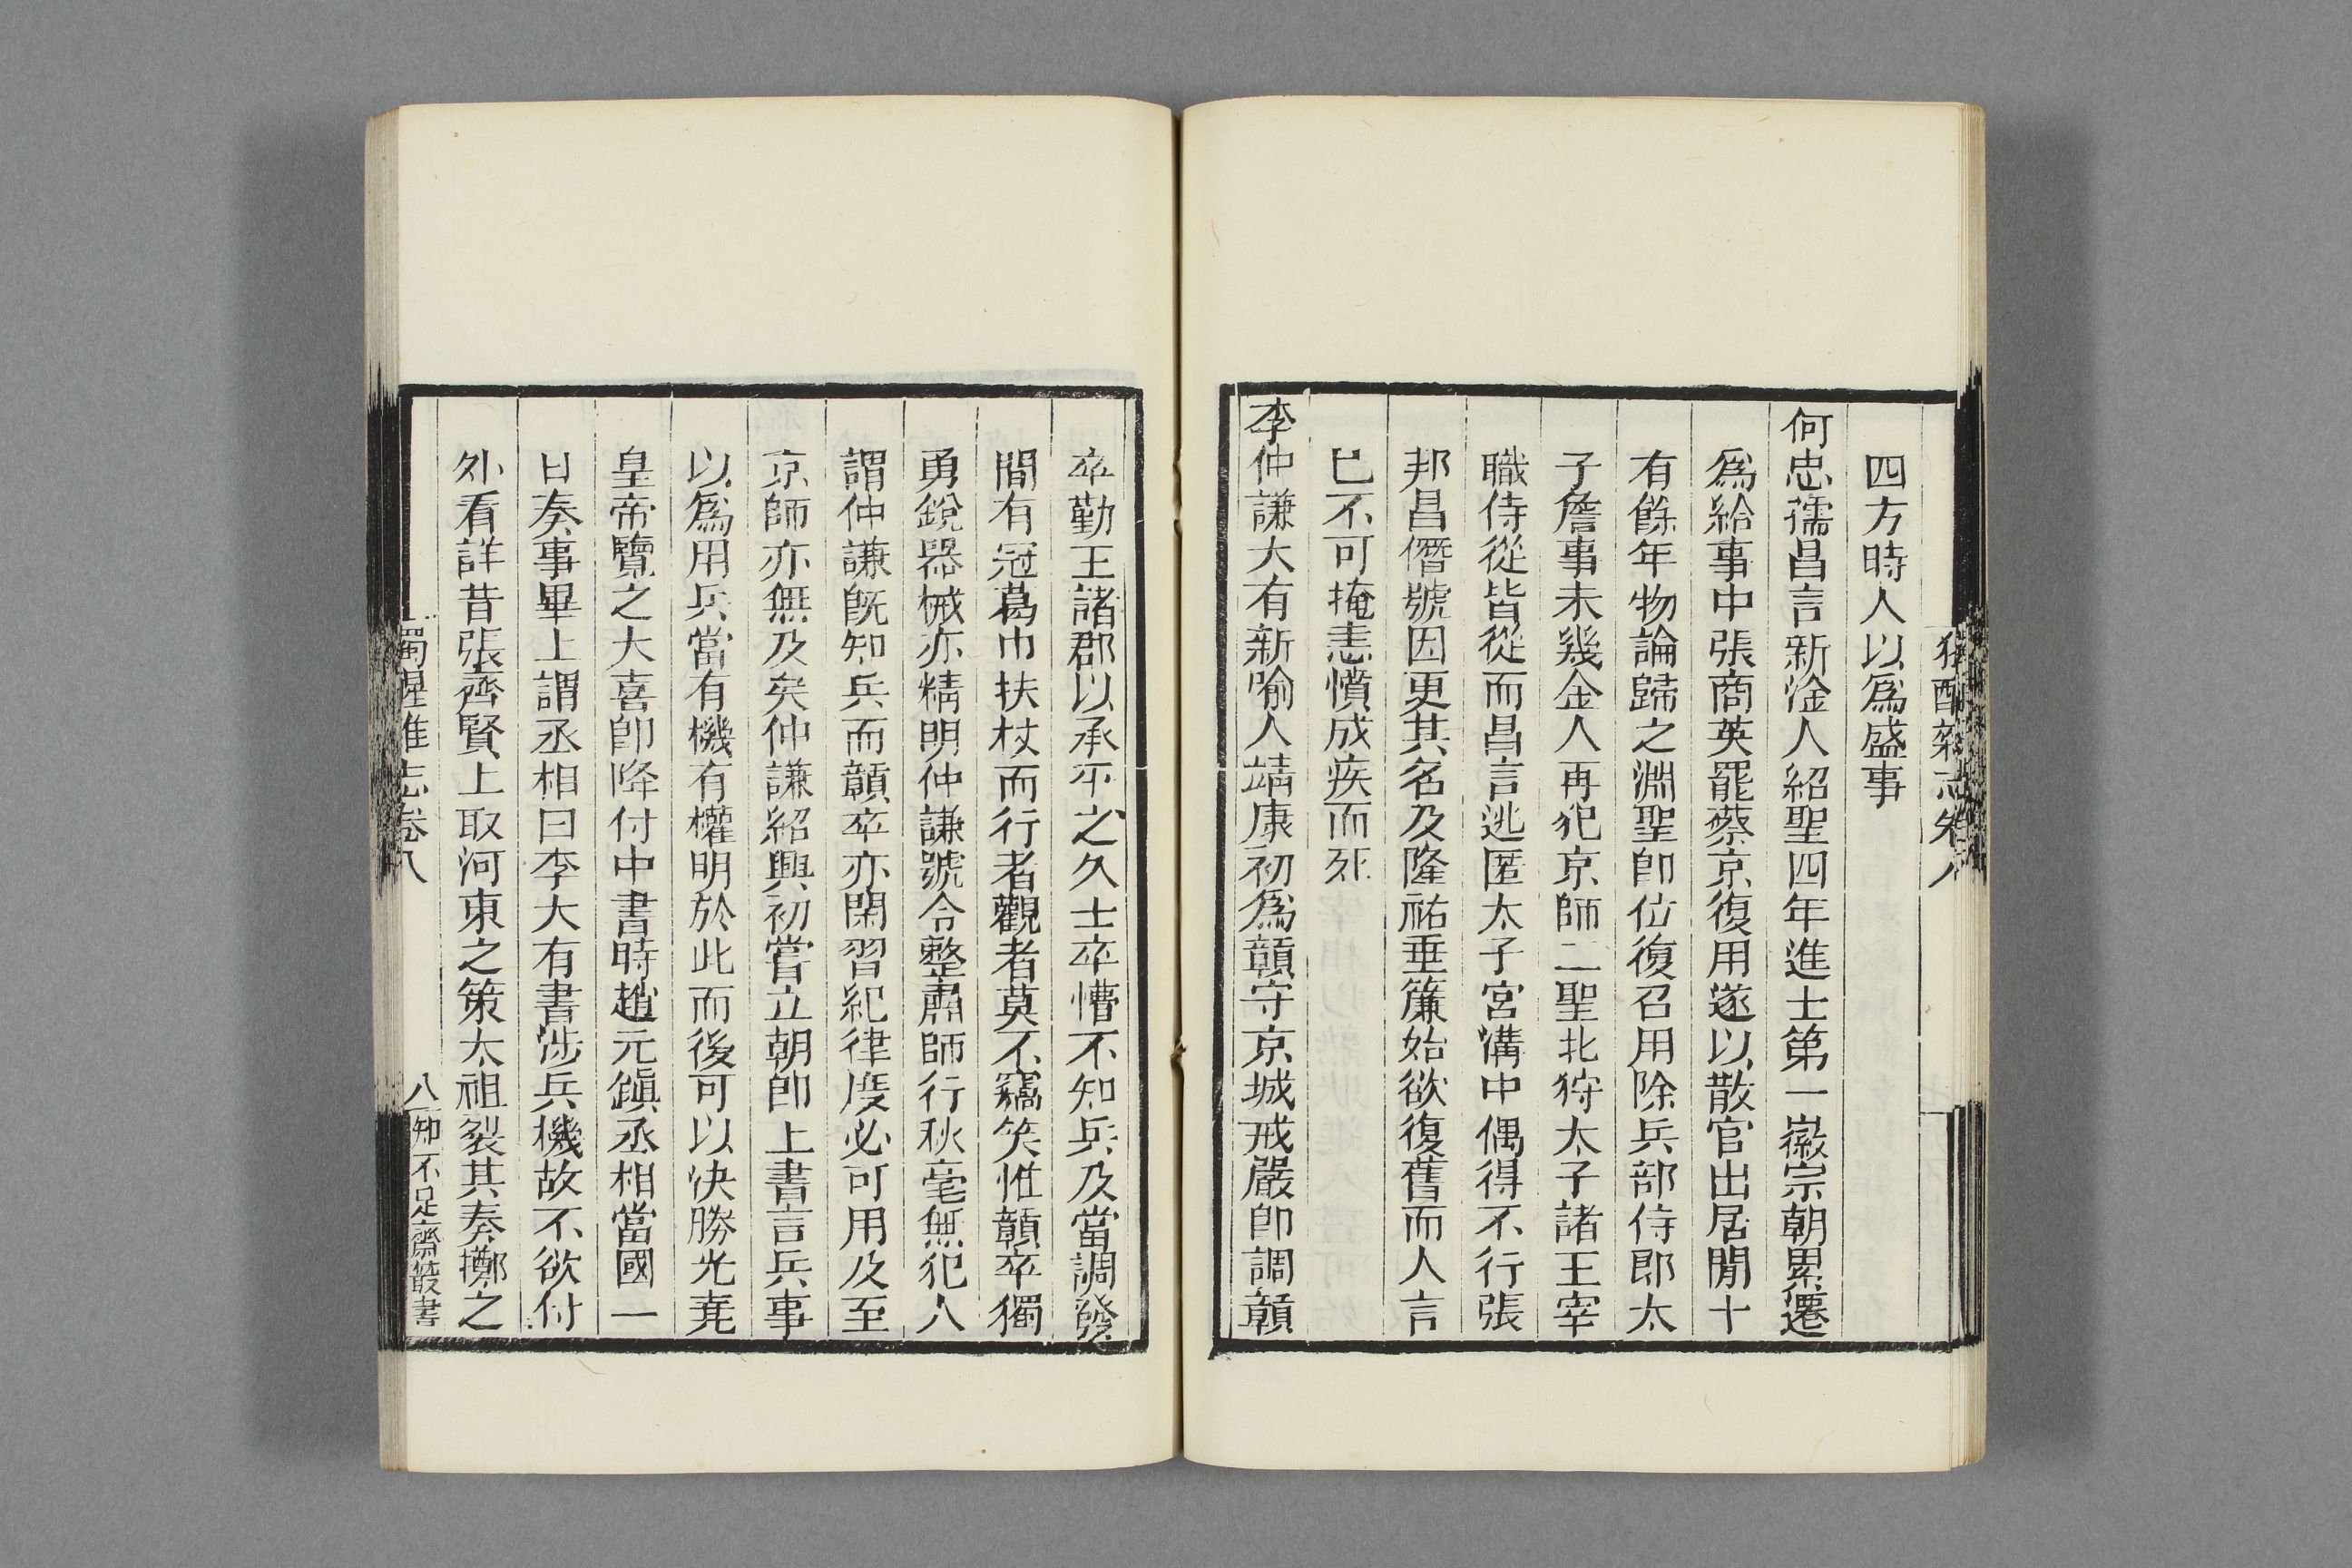 四方時人以爲盛事
何忠孺昌言新淦人紹聖四年進士第一徽宗朝累遷
爲給事中張商英罷蔡京復用遂以散官出居閒十
有餘年物論歸之淵聖卽位復召用除兵部侍郎太
子詹事未幾金人再犯京師二聖北狩太子諸王宰
職侍從皆從而昌言逃匿太子宮溝中偶得不行張
邦昌僭號因更其名及隆祐垂簾始欲復舊而人言
已不可掩恚憤成疾而死
李仲謙大有新喻人靖康初爲贛守京城戒嚴卽調贛
卒勤王諸郡以承平之久士卒懵不知兵及當調發
間有冠葛巾扶杖而行者觀者莫不竊笑惟贛卒獨
勇銳器械亦精明仲謙號令整肅師行秋毫無犯人
謂仲謙旣知兵而贛卒亦閑習紀律度必可用及至
京師亦無及矣仲謙紹興初嘗立朝卽上書言兵事
以爲用兵當有機有權明於此而後可以決勝光堯
皇帝覽之大喜卽降付中書時趙元鎭丞相當國一
日奏事畢上謂丞相曰李大有書涉兵機故不欲付
外看詳昔張齊賢上取河東之策太祖裂其奏擲之
獨醒雜志卷八
八
知不足齋叢書